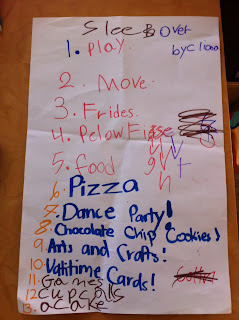 Sleep Over
by Cliona
1. Play
2. Move
3. Frides
4. Pelow Fight
5. food
6. Pizza
7. Dance Party!
8. Chocolate Chip Cookies!
9. Arts and Crafts!
10. Valitime Cards!
11. Games
12. cupcaks
13. a cake